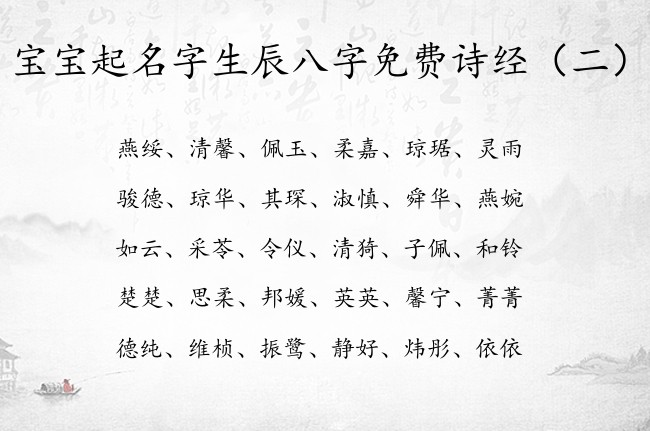 宝宝起名字生辰八字免费诗经（二）
燕绥、清馨、佩玉、柔嘉、琼琚、灵雨
骏德、琼华、其琛、淑慎、舜华、燕婉
如云、采苓、令仪、清猗、子佩、和铃
楚楚、思柔、邦媛、英英、馨宁、菁菁
德纯、维桢、振鹭、静好、炜彤、依依